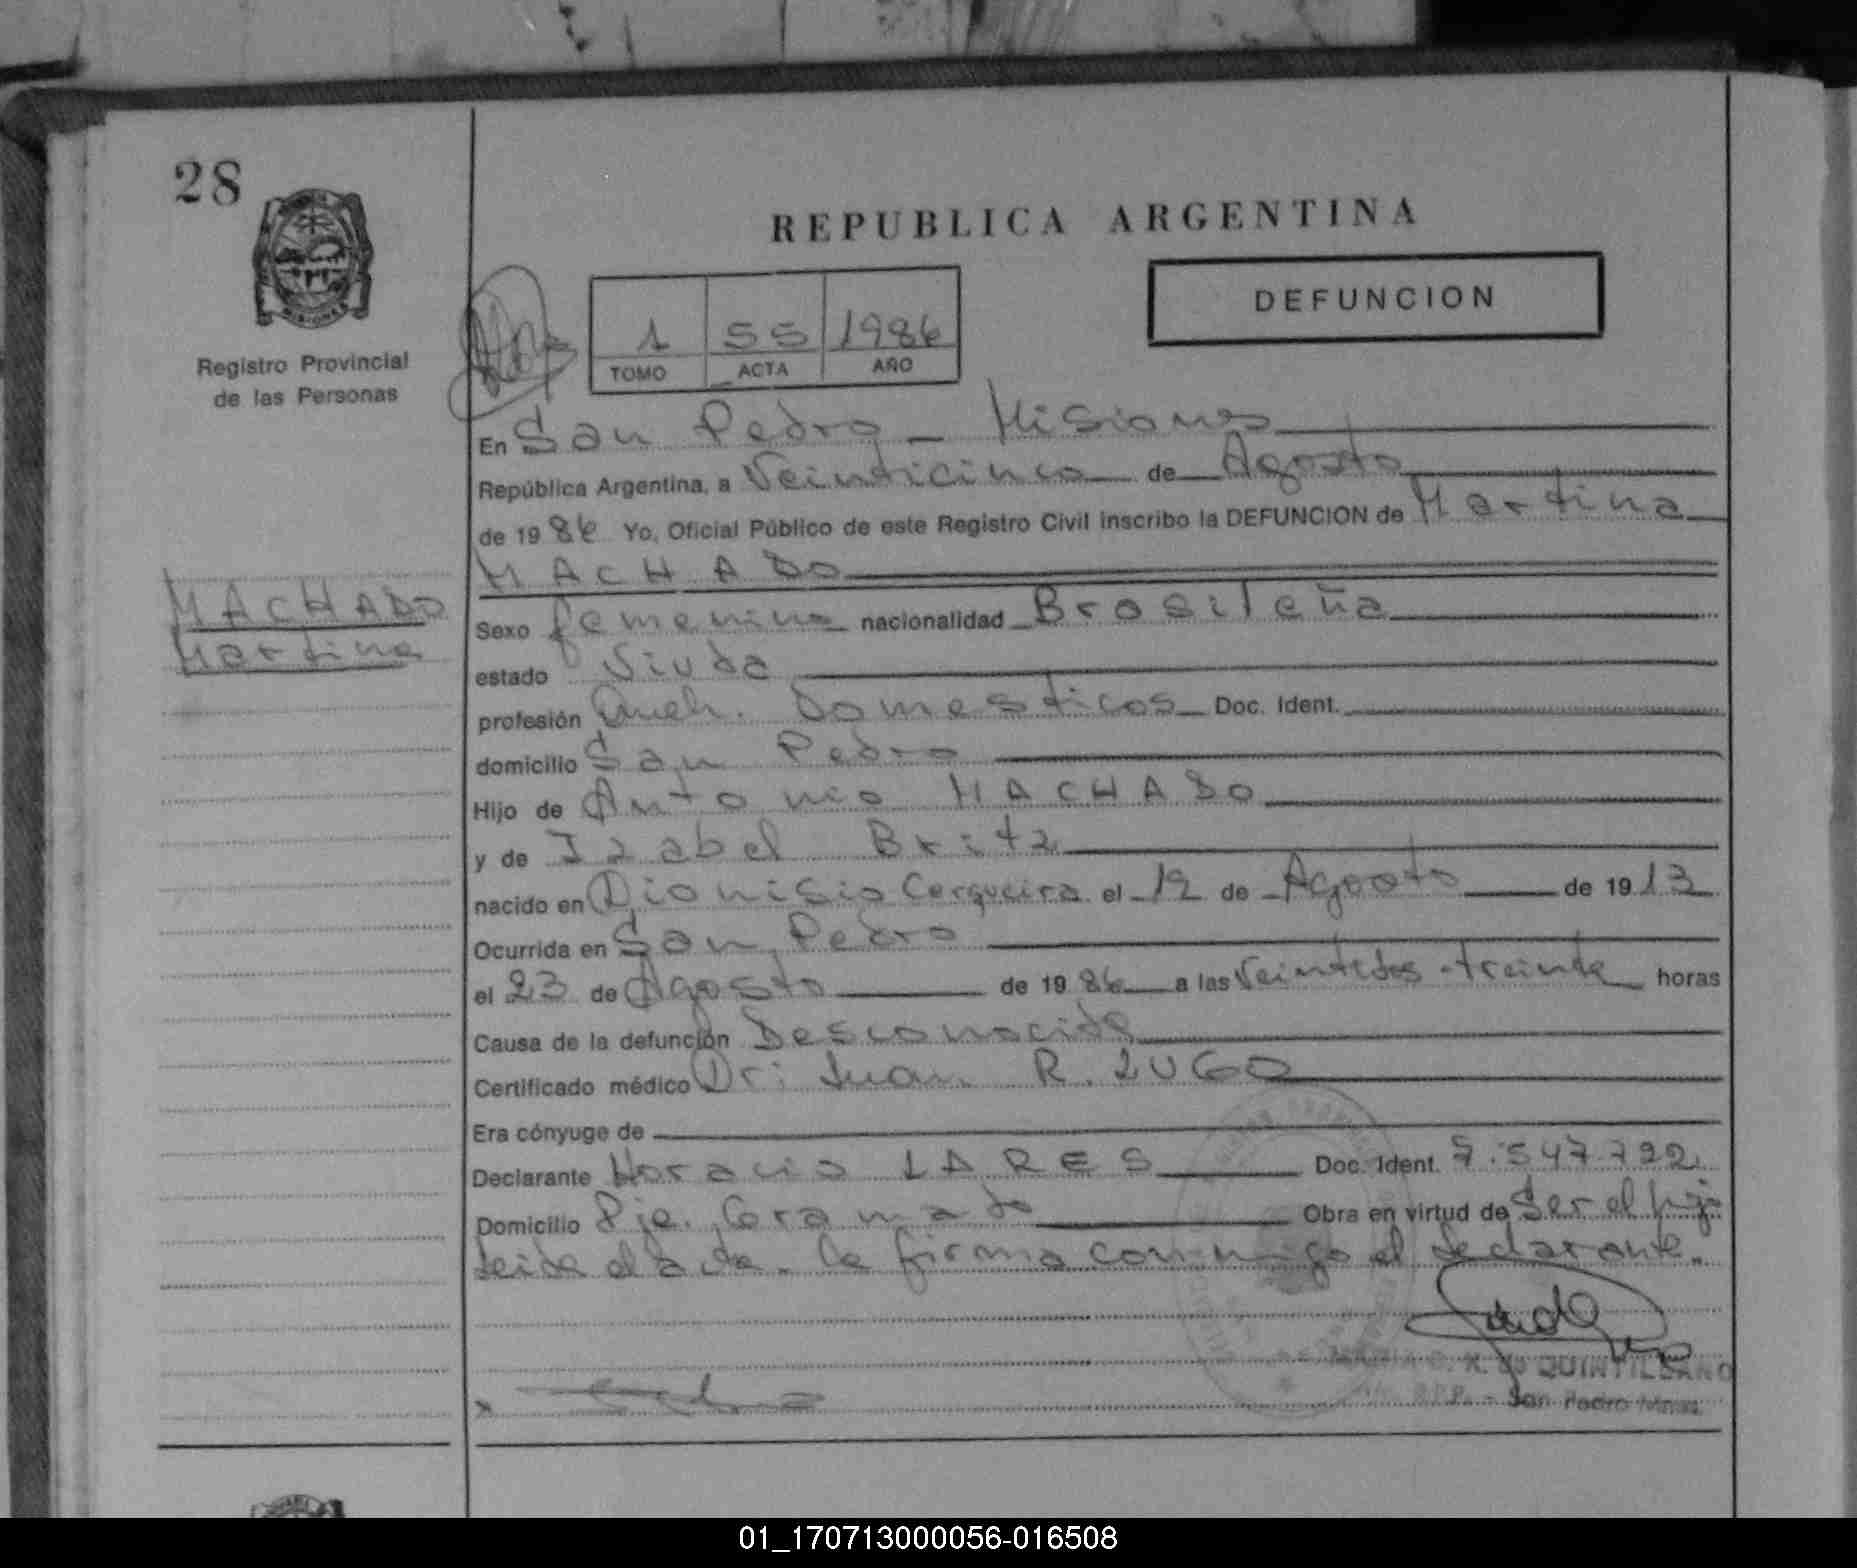 28
REPUBLICA ARGENTINA
DEFUNCION
MISIONES
Registro Provincial
de las Personas
1 55 1986
TOMO ACTA AÑO
En San Pedro - Misiones
República Argentina, a Veinticinco de Agosto
de 1986 Yo, Oficial Público de este Registro Civil inscribo la DEFUNCION de Martina
MACHADO
MACHADO
Martina
Sexo femenino nacionalidad Brasileña
estado Viuda
profesión Queh. Domesticos Doc. Ident.
domicilio San Pedro
Hijo de Antonio MACHADO
y de Izabel Britz
nacido en Dionisio Cerqueira el 12 de Agosto de 1913
Ocurrida en San Pedro
el 23 de Agosto de 1986 a las Veintidos-treinta horas
Causa de la defunción Desconocida
Certificado médico Dr: Juan R. LUGO
Era cónyuge de
Declarante Horacio LARES Doc. Ident. 7.547.792
Domicilio Pje. Gramado Obra en virtud de Ser el hijo
Leida el acta. La firma conmigo el declarante.
QUINTILLANO
San Pedro Mnes.
x
01_170713000056-016508